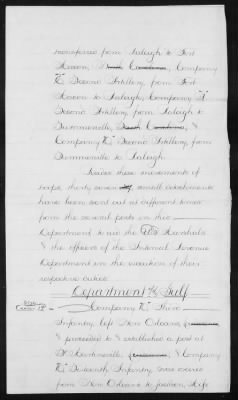 transferred from Raleigh to Fort
Macon, South Carolina, Company
"K" Second Artillery, from Fort
Macon to Raleigh, Company "A"
Second Artillery, from Raleigh to
Summerville, South Carolina, &
Company "K" Second Artillery, from
Summerville to Raleigh.
Besides these movements of
troops, thirty seven small detachments
have been sent out at different times
from the several posts in this
Department to aid the U.S. Marshals
& the officers of the Internal Revenue
Department in the execution of their
respective duties.
Department of the Gulf
Company "K" Third
Infantry, left New Orleans,
& proceeded to & established a post at
St. Martinsville, & Company
"K" Sixteenth Infantry, was moved
from New Orleans to Jackson, Miss